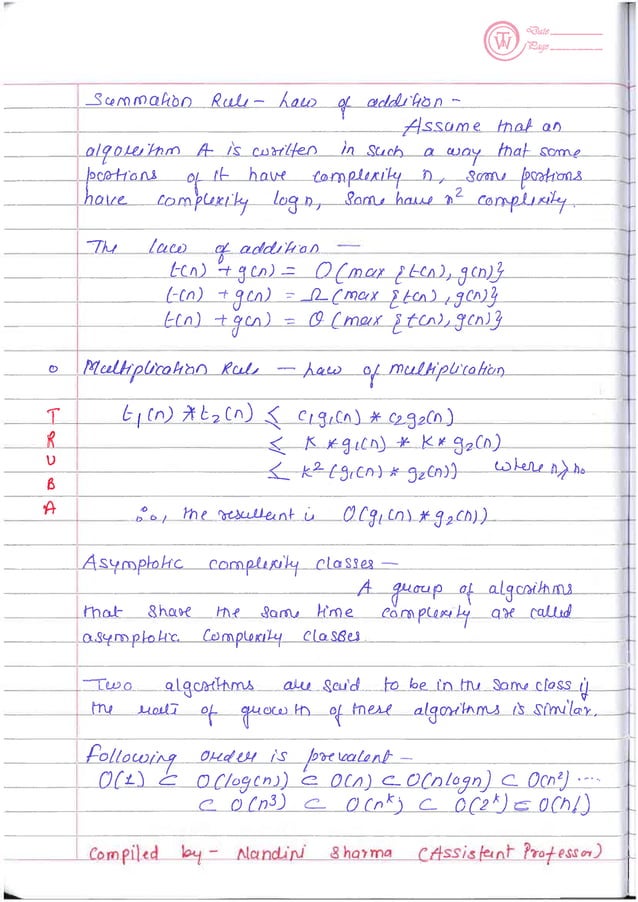 TW
Date
Page
Summation Rule - Law of addition -
Assume that an
algorithm A is written in such a way that some
portions of it have complexity n, some portions
have complexity log n, some have n² complexity.
The law of addition —
t(n) + g(n) = O(max {t(n), g(n)}
t(n) + g(n) = Ω(max {t(n), g(n)}
t(n) + g(n) = Θ(max {t(n), g(n)}
Multiplication Rule — Law of multiplication
t₁(n) * t₂(n) ≤ c₁g₁(n) * c₂g₂(n)
≤ K * g₁(n) * K * g₂(n)
≤ K² (g₁(n) * g₂(n)) where n ≥ n₀
∴, the resultant is O(g₁(n) * g₂(n))
TRUBA
Asymptotic complexity classes —
A group of algorithms
that share the same time complexity are called
asymptotic complexity classes
Two algorithms are said to be in the same class if
the rate of growth of these algorithms is similar.
Following order is prevalent —
O(1) ⊂ O(log(n)) ⊂ O(n) ⊂ O(nlogn) ⊂ O(n²) ....
⊂ O(n³) ⊂ O(nᵏ) ⊂ O(2ᵏ) ⊂ O(n!)
Compiled by - Nandini Sharma (Assistent Professor)